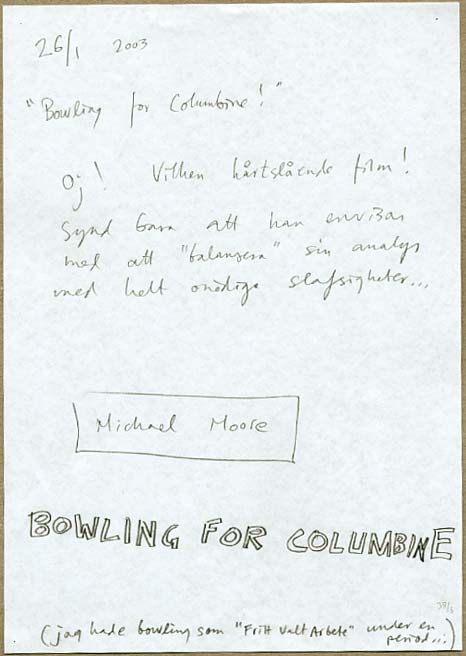 26/1 2003
"Bowling for Columbine!"
Oj! Vilken hårtslående film!
Synd bara att han envisas
med att "balansera" sin analys
med helt onödiga slafsigheter...
Michael Moore
BOWLING FOR COLUMBINE
(jag hade bowling som "Fritt Valt Arbete" under en
period...)